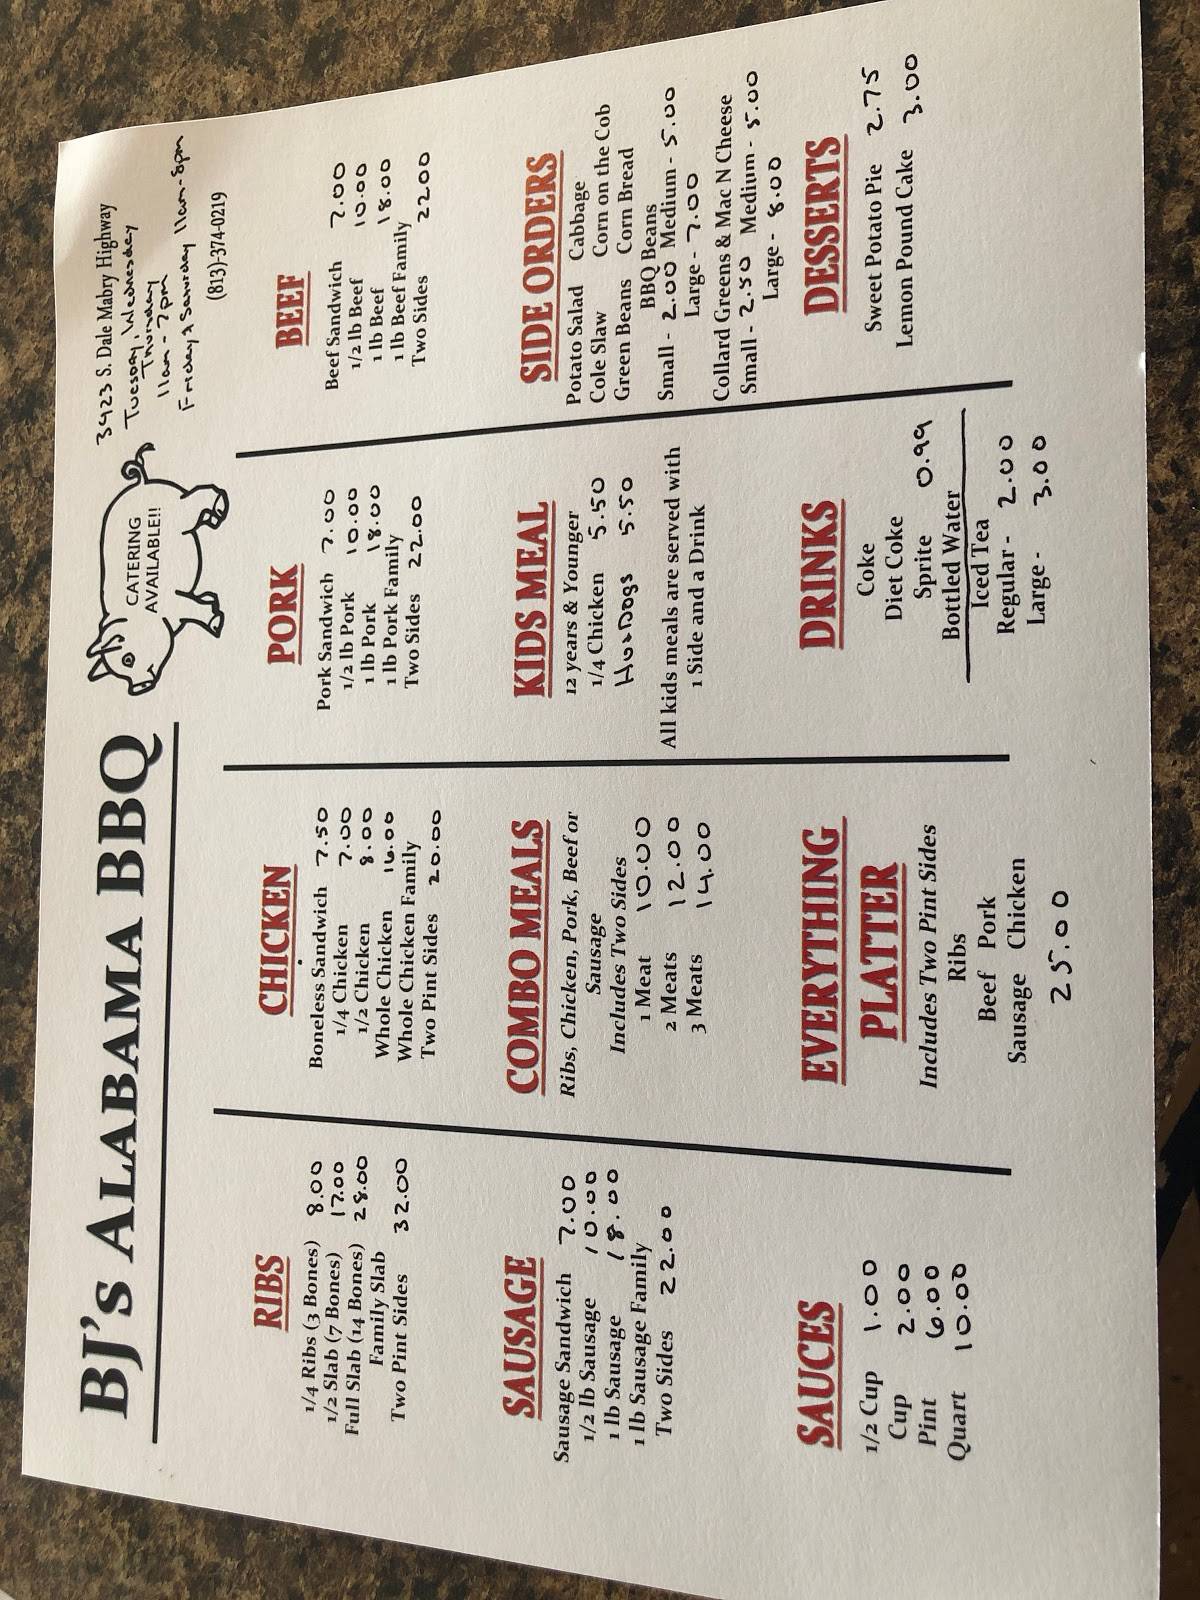 BJ's ALABAMA BBQ
CATERING
AVAILABLE!!
3923 S. Dale Mabry Highway
Tuesday, Wednesday
Thursday
11am - 7pm
Friday & Saturday 11am - 8pm
(813)-374-0219
RIBS
1/4 Ribs (3 Bones) 8.00
1/2 Slab (7 Bones) 17.00
Full Slab (14 Bones) 28.00
Family Slab
Two Pint Sides 32.00
CHICKEN
Boneless Sandwich 7.50
1/4 Chicken 7.00
1/2 Chicken 8.00
Whole Chicken 16.00
Whole Chicken Family
Two Pint Sides 20.00
PORK
Pork Sandwich 7.00
1/2 lb Pork 10.00
1 lb Pork 18.00
1 lb Pork Family
Two Sides 22.00
BEEF
Beef Sandwich 7.00
1/2 lb Beef 10.00
1 lb Beef 18.00
1 lb Beef Family
Two Sides 22.00
SAUSAGE
Sausage Sandwich 7.00
1/2 lb Sausage 10.00
1 lb Sausage 18.00
1 lb Sausage Family
Two Sides 22.00
COMBO MEALS
Ribs, Chicken, Pork, Beef or
Sausage
Includes Two Sides
1 Meat 10.00
2 Meats 12.00
3 Meats 14.00
KIDS MEAL
12 years & Younger
1/4 Chicken 5.50
HotDogs 5.50
All kids meals are served with
1 Side and a Drink
SIDE ORDERS
Potato Salad Cabbage
Cole Slaw Corn on the Cob
Green Beans Corn Bread
BBQ Beans
Small - 2.00 Medium - 5.00
Large - 7.00
Collard Greens & Mac N Cheese
Small - 2.50 Medium - 5.00
Large - 8.00
SAUCES
1/2 Cup 1.00
Cup 2.00
Pint 6.00
Quart 10.00
EVERYTHING
PLATTER
Includes Two Pint Sides
Ribs
Beef Pork
Sausage Chicken
25.00
DRINKS
Coke
Diet Coke
Sprite 0.99
Bottled Water
Iced Tea
Regular - 2.00
Large - 3.00
DESSERTS
Sweet Potato Pie 2.75
Lemon Pound Cake 3.00